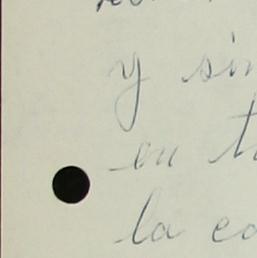 y sin
en t
la co